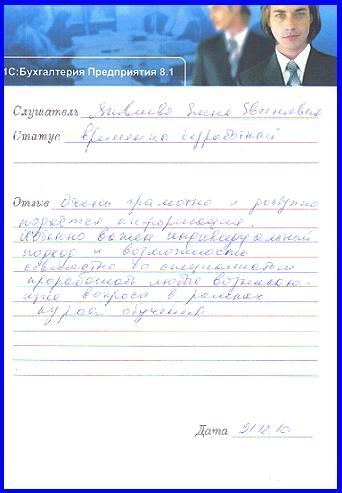 1С:Бухгалтерия Предприятия 8.1
Слушатель Яковлева Елена Евгеньевна
Статус временно безработный
Отзыв Очень грамотно и доступно
подаётся информация.
Особенно важен индивидуальный
подход и возможность
совместно со специалистом
проработать любые возникаю-
щие вопросы в рамках
курса обучения
Дата 21.12.10